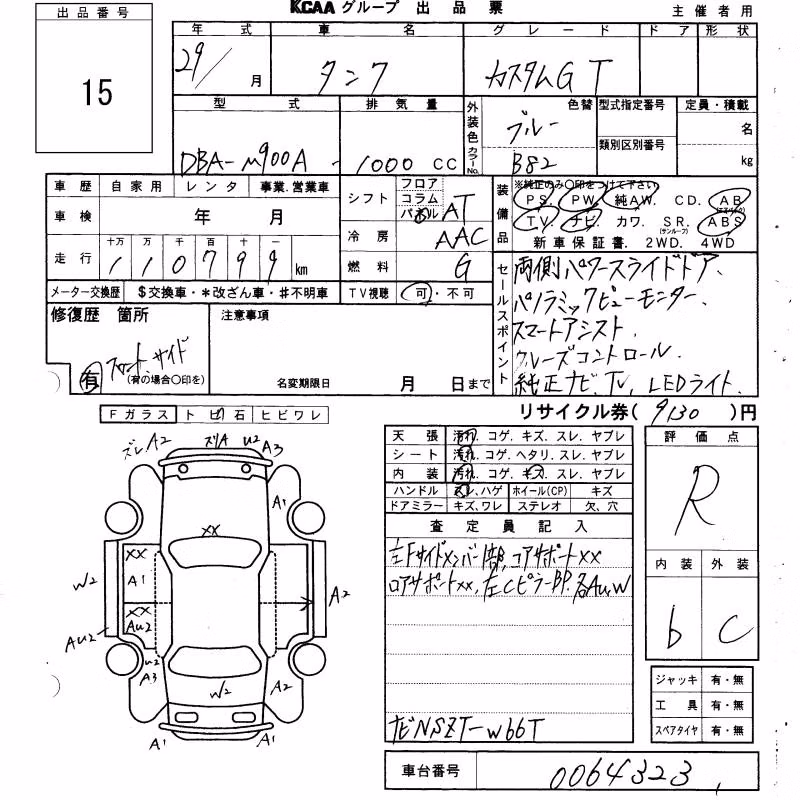 KCAA グループ 出品票
主催者用
出品番号
15
年式 車名 グレード ドア 形状
29/ 月 タンク カスタムG T
型式 排気量 外装色 色替 型式指定番号 定員・積載
カラーNo. 類別区別番号 名
DBA-M900A - 1000 CC ブルー B82 kg
車歴 自家用 レンタ 事業.営業車
車検 年 月
走行 十万 万 千 百 十 一
110799 km
メーター交換歴 $交換車・*改ざん車・#不明車
シフト フロア コラム パネル AT
冷房 AAC
燃料 G
TV視聴 可・不可
装備品 ※純正のみ○印をつけて下さい
PS. PW. 純AW. CD. AB
(エアバック)
TV. ナビ. カワ. SR. ABS
(サンルーフ)
新車保証書. 2WD. 4WD
セールスポイント
両側パワースライドドア、
パノラミックビューモニター、
スマートアシスト、
クルーズコントロール、
純正ナビ、TV、LEDライト、
修復歴 箇所
有 フロント、サイド
(有の場合○印を)
注意事項
名変期限日 月 日まで
リサイクル券( 9130 )円
Fガラス トビ石 ヒビワレ
ズレ A2 スリA U2 A3
A1
XX
XX
A1
W2
XX
AU2
AU2
A2
U2
A3
W2
A2
A1
A1
天張 汚れ. コゲ. キズ. スレ. ヤブレ
シート 汚れ. コゲ. ヘタリ. スレ. ヤブレ
内装 汚れ. コゲ. キズ. スレ. ヤブレ
ハンドル スレ.ハゲ ホイール(CP) キズ
ドアミラー キズ.ワレ ステレオ 欠、穴
査定員記入
左Fサイドメンバー1部、コアサポートXX
ロアサポートXX、左CピラーBP. 各AU,W
ナビNSZT-W66T
評価点
R
内装 外装
b C
ジャッキ 有・無
工具 有・無
スペアタイヤ 有・無
車台番号 0064323